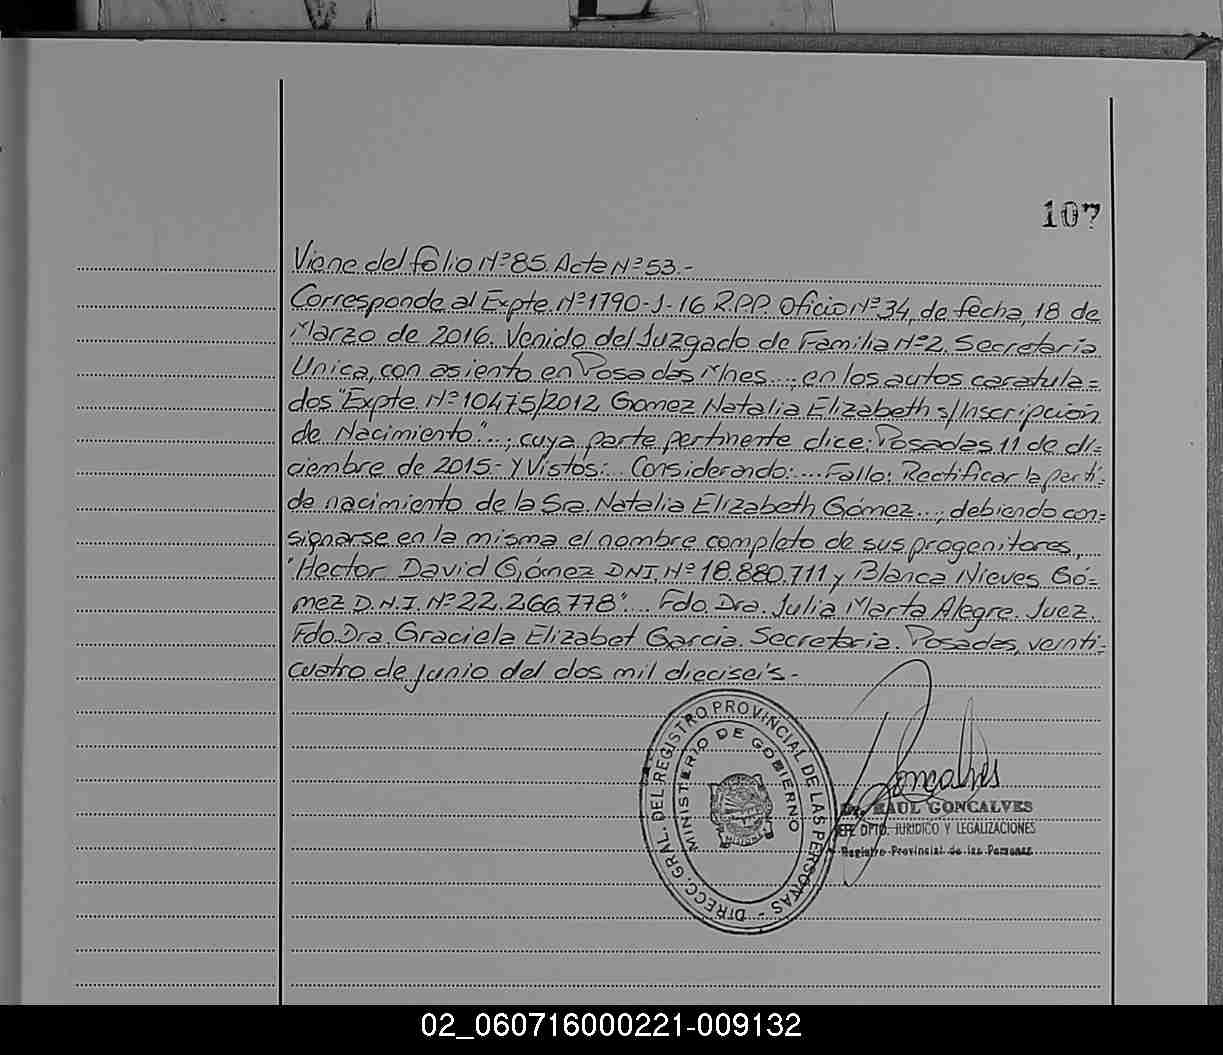 107
Viene del folio Nº 85 Acta Nº 53.-
Corresponde al Expte. Nº 1790-J-16 R.P.P. Oficio Nº 34, de fecha, 18 de
Marzo de 2016. Venido del Juzgado de Familia Nº 2. Secretaria
Unica, con asiento en Posadas Mnes...; en los autos caratula=
dos "Expte. Nº 10475/2012 Gomez Natalia Elizabeth s/Inscripción
de Nacimiento"...; cuya parte pertinente dice: Posadas 11 de di=
ciembre de 2015- Y Vistos:... Considerando:... Fallo: Rectificar la parti-
de nacimiento de la Sra. Natalia Elizabeth Gómez...; debiendo con=
signarse en la misma el nombre completo de sus progenitores,
"Hector David Gómez DNI. Nº 18.880.711 y Blanca Nieves Gó=
mez D.N.I. Nº 22.266.778"... Fdo. Dra. Julia Marta Alegre. Juez.
Fdo. Dra. Graciela Elizabet Garcia. Secretaria. Posadas, veinti-
cuatro de junio del dos mil dieciseis.-
DIRECC. GRAL. DEL REGISTRO PROVINCIAL DE LAS PERSONAS -
MINISTERIO DE GOBIERNO
MISIONES
Goncalves
Dr. RAUL GONCALVES
JEFE DPTO. JURIDICO Y LEGALIZACIONES
Registro Provincial de las Personas
02_060716000221-009132